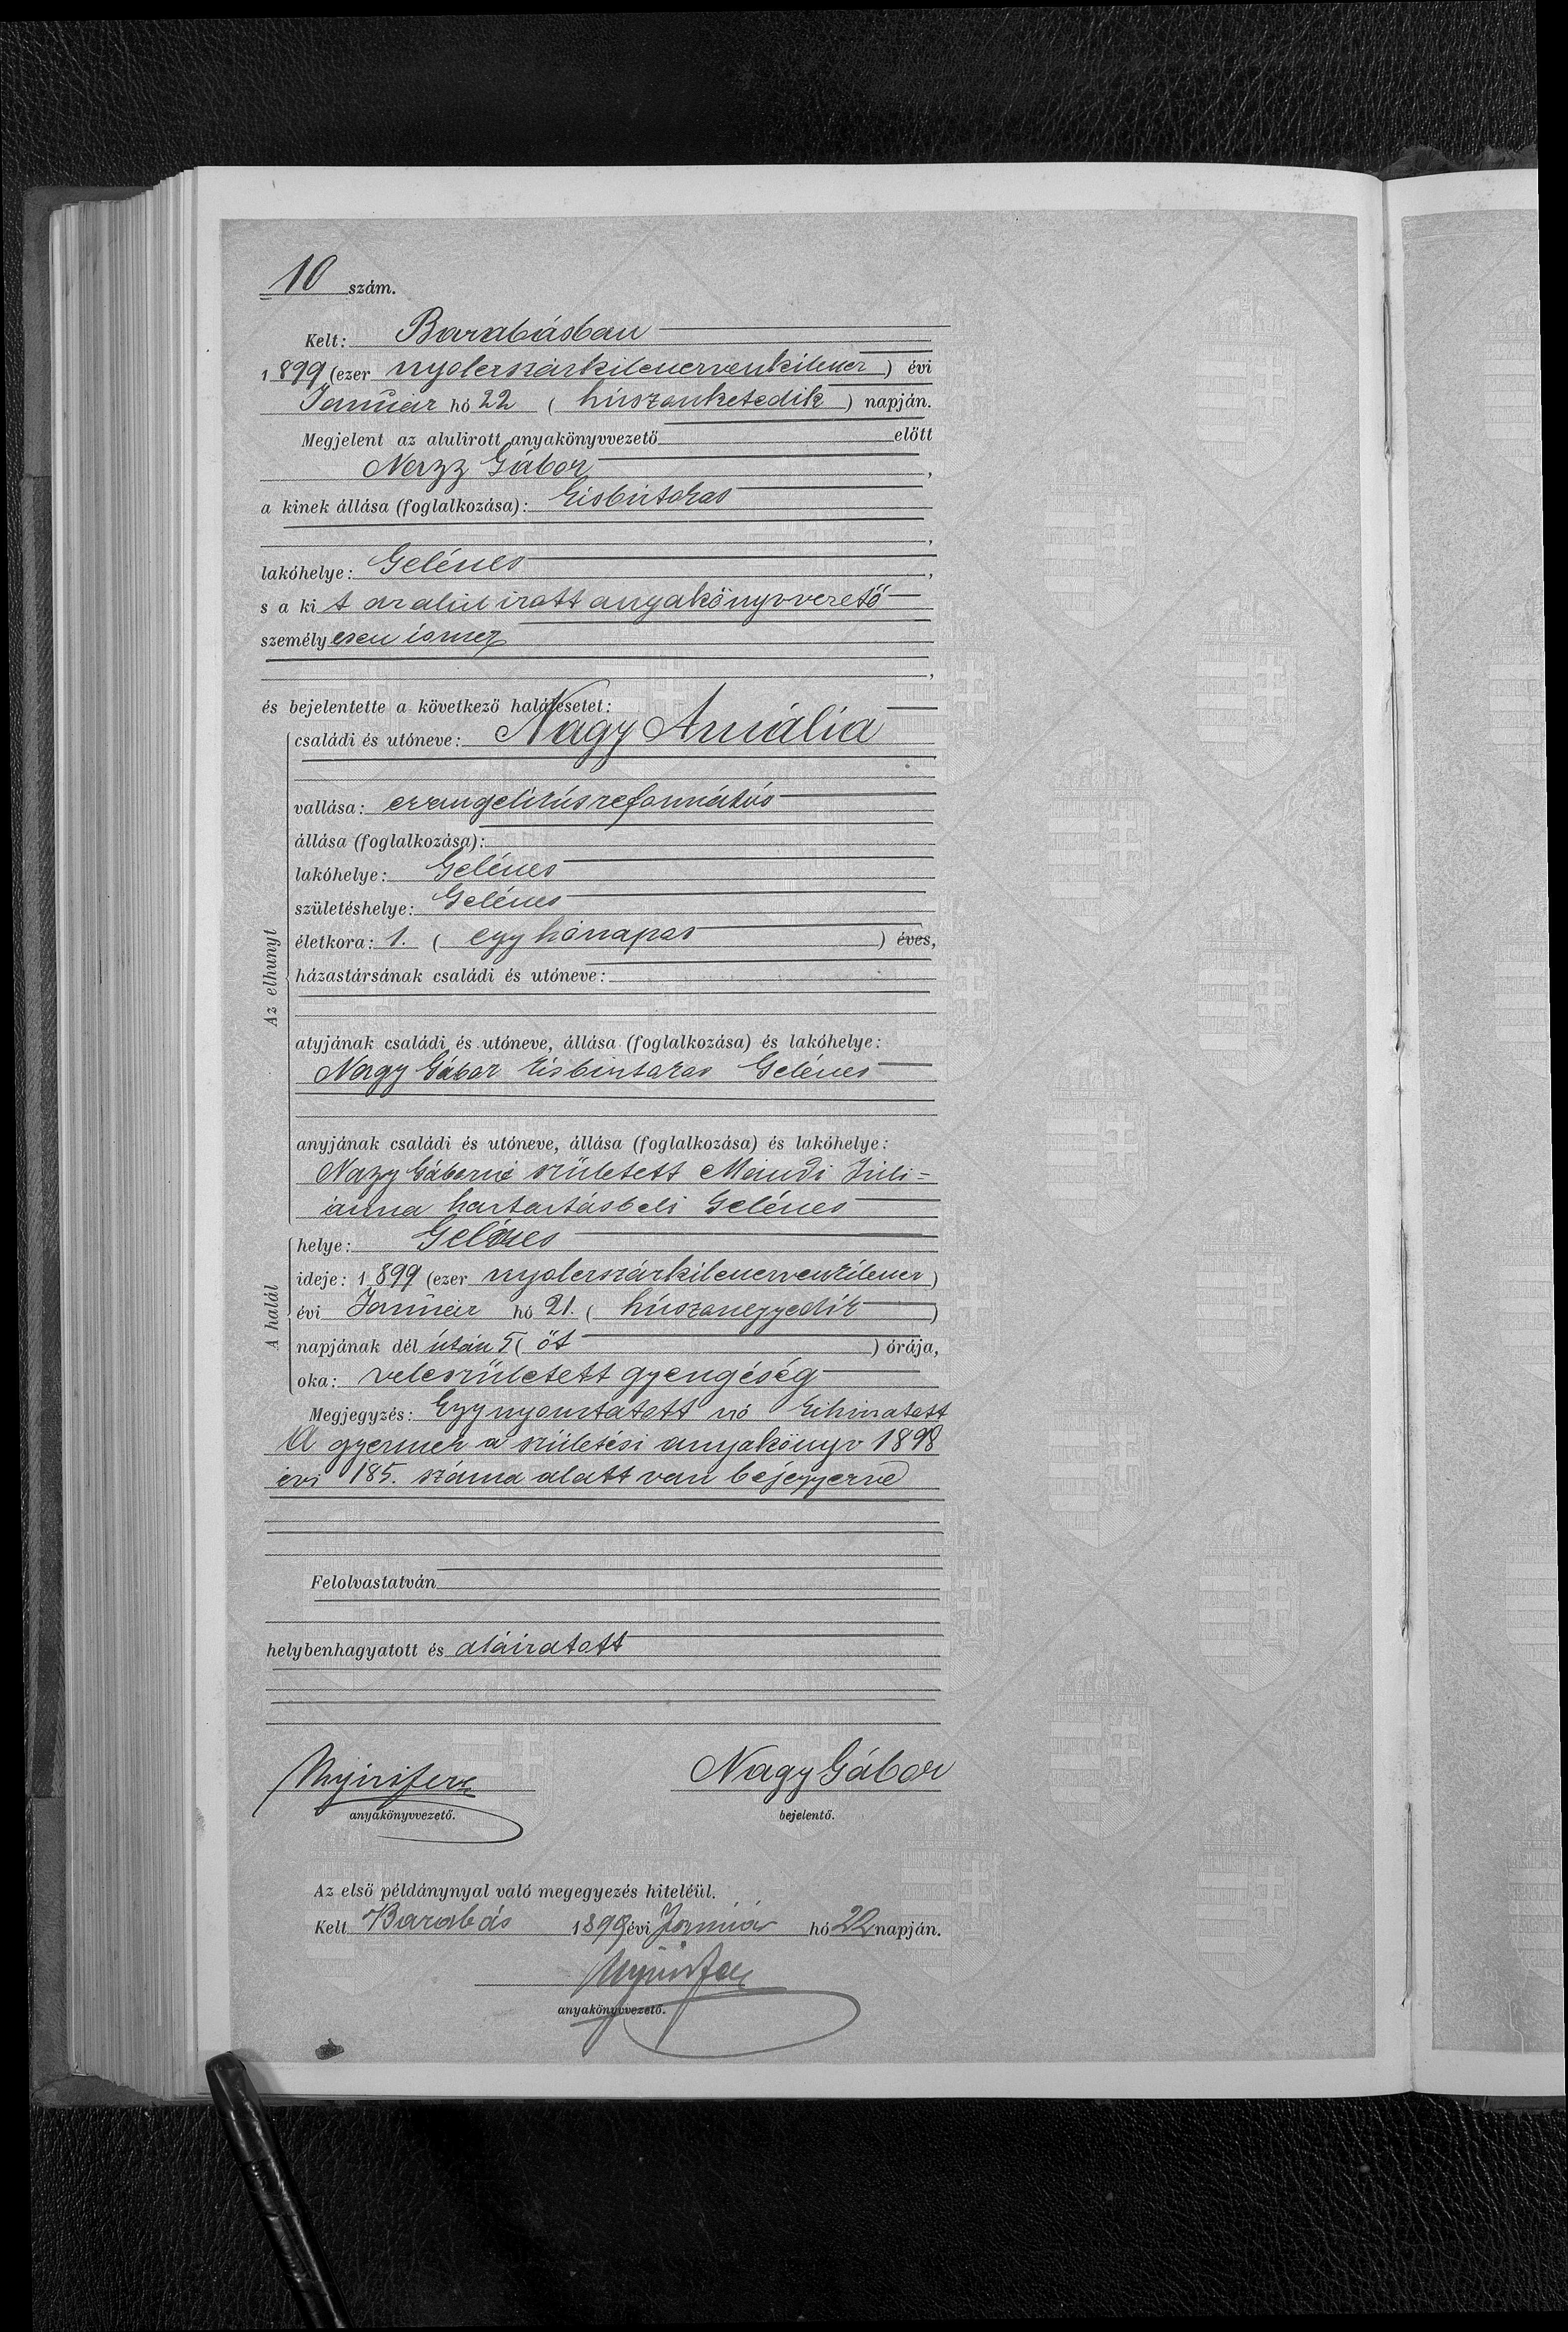 10 szám.
Kelt: Barabásban
1899 (ezer nyolcszázkilencvenkilenc) évi
Január hó 22 (húszanketedik) napján.
Megjelent az alulirott anyakönyvvezető előtt
Nagy Gábor,
a kinek állása (foglalkozása): kisbirtokos
,
lakóhelye: Gelénes,
s a kit az alul irott anyakönyvvezető
személyesen ismer
,
és bejelentette a következő halálesetet:
Az elhunyt
családi és utóneve: Nagy Amália
vallása: evangelikus református
állása (foglalkozása):
lakóhelye: Gelénes
születéshelye: Gelénes
életkora: 1. (egy hónapos) éves,
házastársának családi és utóneve:
atyjának családi és utóneve, állása (foglalkozása) és lakóhelye:
Nagy Gábor kisbirtokos Gelénes
anyjának családi és utóneve, állása (foglalkozása) és lakóhelye:
Nagy Gáborné született Mándi Juli=
ánna háztartásbeli Gelénes
A halál
helye: Gelénes
ideje: 1899 (ezer nyolcszázkilencvenkilenc)
évi Január hó 21. (húszanegyedik)
napjának dél után 5 (öt) órája,
oka: veleszületett gyengéség
Megjegyzés: Egy nyomtatott szó kihuzatott
A gyermek a születési anyakönyv 1898
évi 185. száma alatt van bejegyezve
Felolvastatván
helybenhagyatott és aláiratott
Nagy Gábor
anyakönyvvezető. bejelentő.
Az első példánynyal való megegyezés hiteléül.
Kelt Barabás 1899 évi Január hó 22 napján.
anyakönyvvezető.